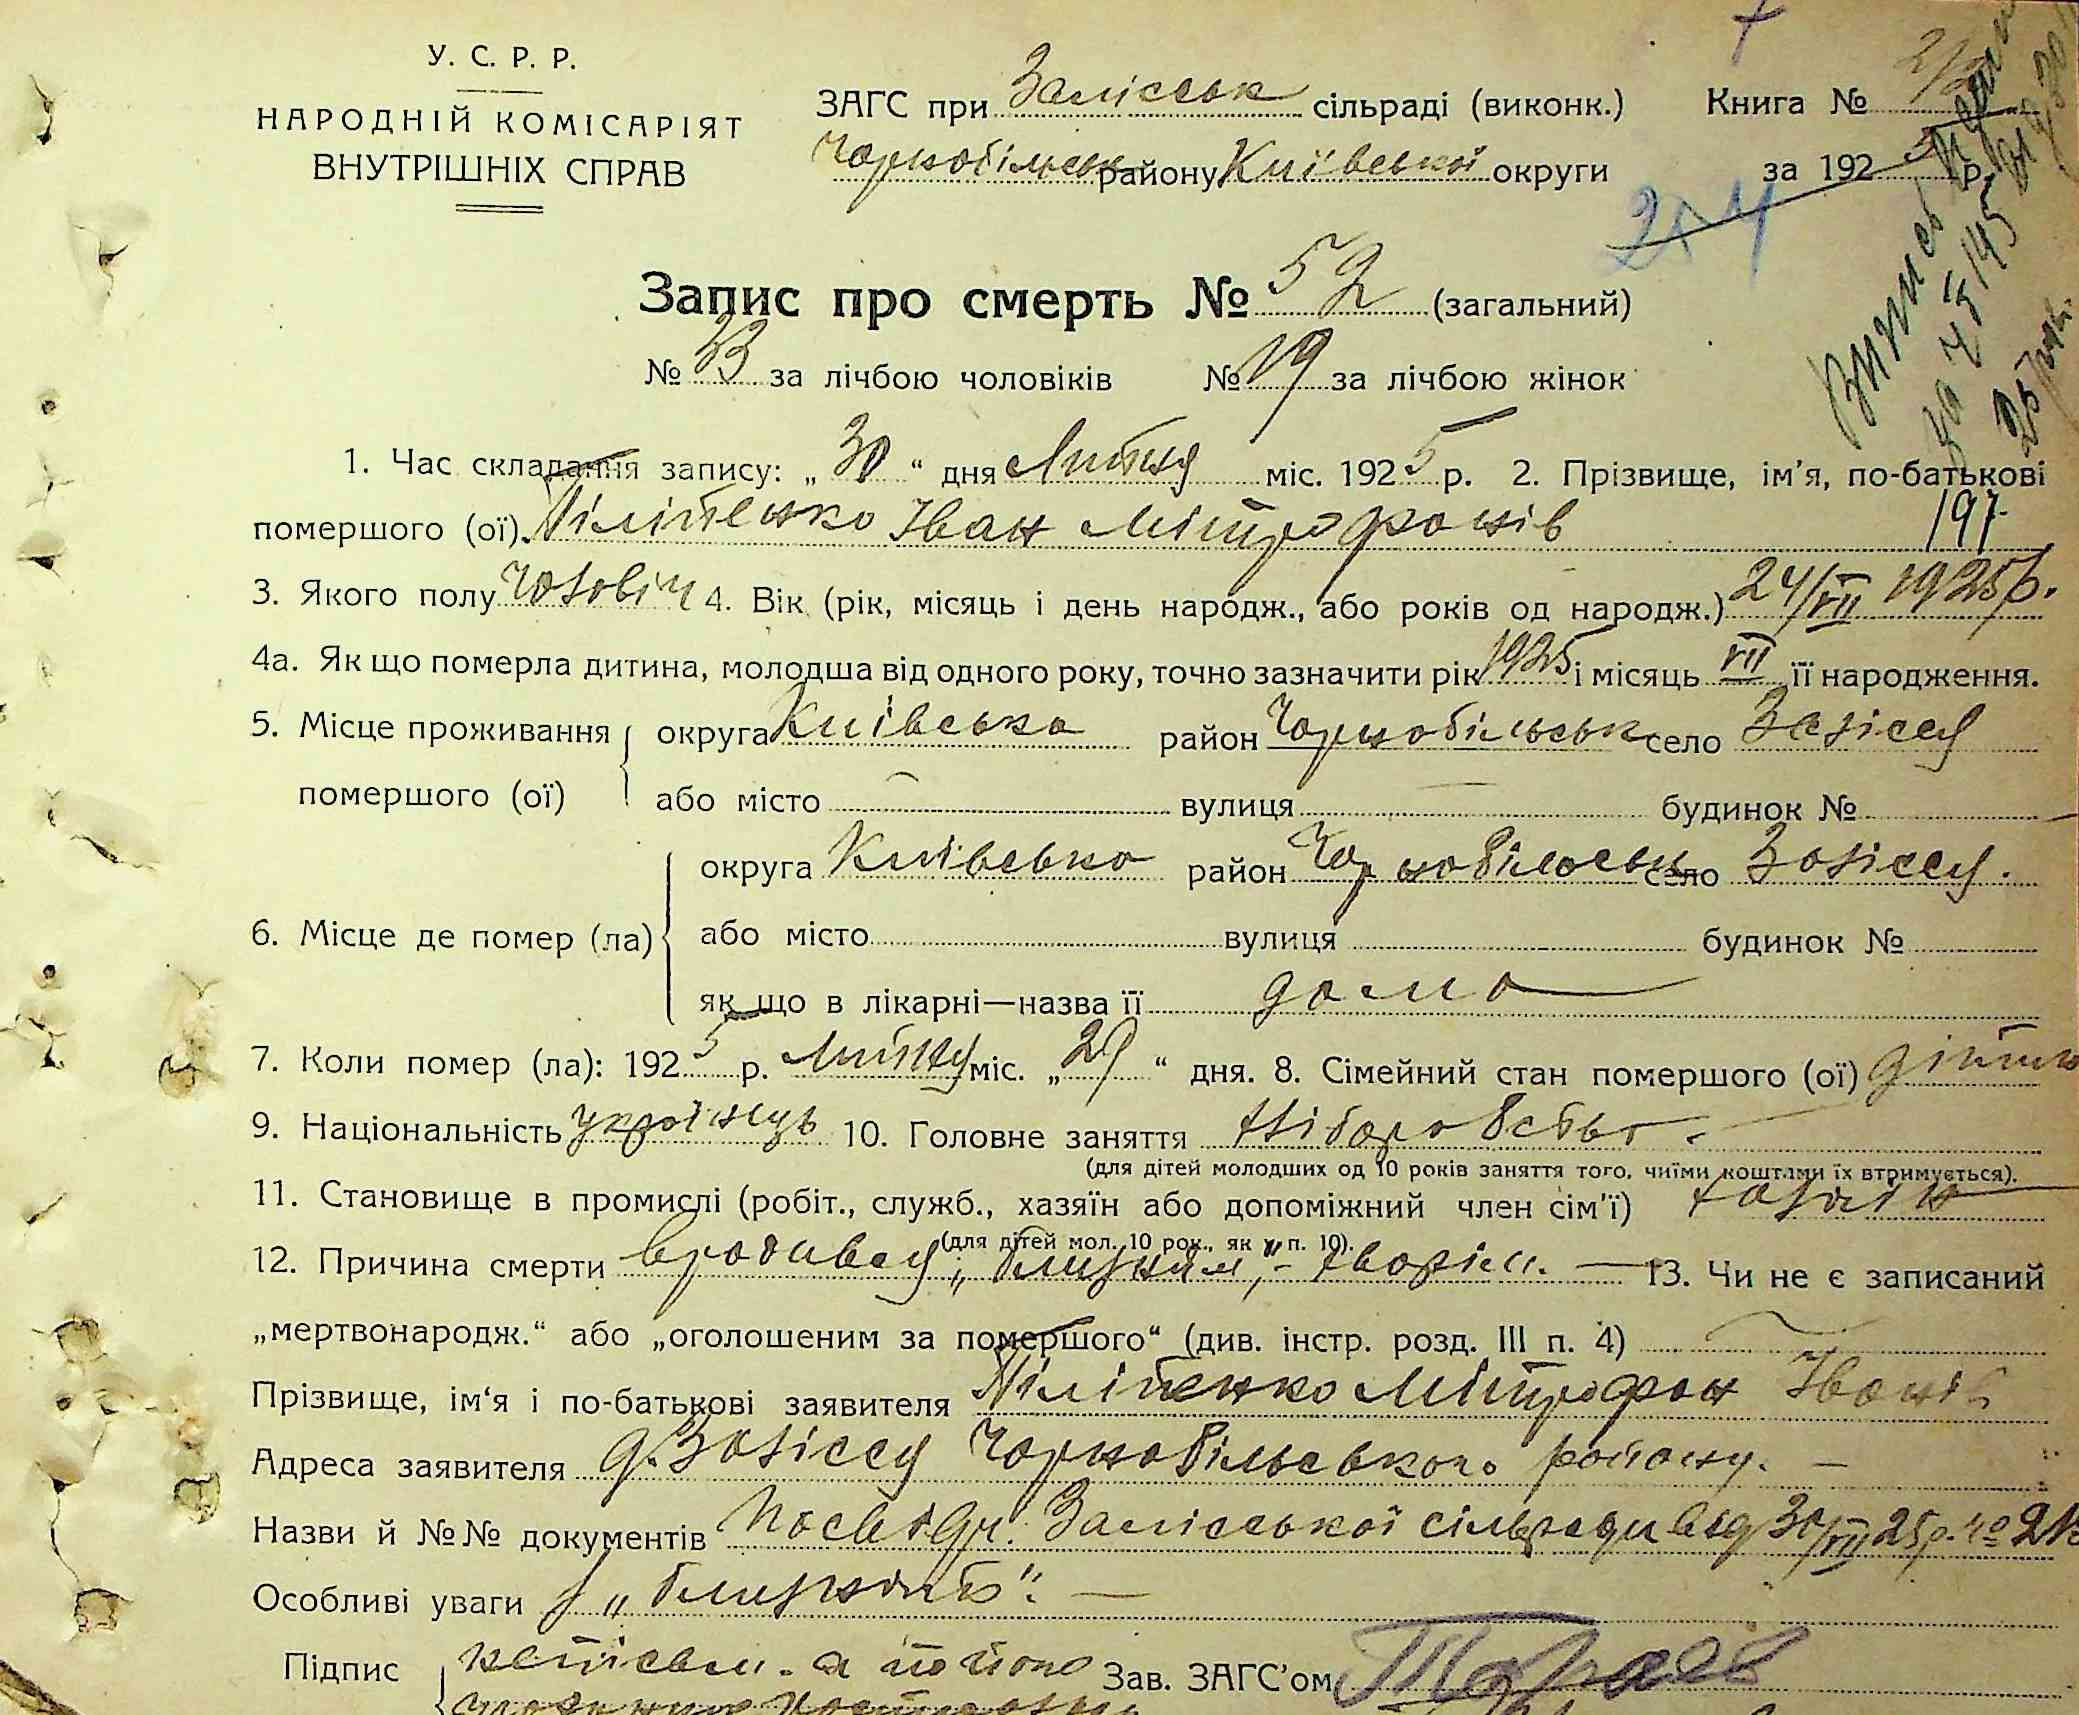 У. С. Р. Р.
НАРОДНІЙ КОМІСАРІЯТ
ВНУТРІШНІХ СПРАВ
ЗАГС при Залісськ сільраді (виконк.) Книга № 2/
Чорнобільськ району Київської округи за 192 5 р.
Запис про смерть № 52 (загальний)
№ 33 за лічбою чоловіків № 19 за лічбою жінок
1. Час складання запису: „ 30 “ дня Липня міс. 192 5 р. 2. Прізвище, ім'я, по-батькові
помершого (ої). Піліпенко Іван Мітрофонів 197
3. Якого полу Чоловіч 4. Вік (рік, місяць і день народж., або років од народж.) 24/VII 1925 р.
4а. Як що померла дитина, молодша від одного року, точно зазначити рік 1925 і місяць VII її народження.
5. Місце проживання помершого (ої) округа Київська район Чорнобільськ село Залісся
або місто вулиця будинок №
6. Місце де помер (ла) округа Київська район Чорнобільськ село Залісся.
або місто вулиця будинок №
як що в лікарні—назва її дома
7. Коли помер (ла): 192 5 р. Липня міс. „ 29 “ дня. 8. Сімейний стан помершого (ої)
9. Національність українець 10. Головне заняття хліборобство.
(для дітей молодших од 10 років заняття того, чиїми коштами їх втримується).
11. Становище в промислі (робіт., служб., хазяїн або допоміжний член сім'ї) хазяїн
(для дітей мол. 10 рок., як у п. 10).
12. Причина смерти вродився „близням“, - хворім. — 13. Чи не є записаний
„мертвонародж.“ або „оголошеним за помершого“ (див. інстр. розд. III п. 4)
Прізвище, ім‘я і по-батькові заявителя Піліпенко Мітрофон Іванів
Адреса заявителя д. Залісся Чорнобільського району. —
Назви й №№ документів Посвідч. Заліської сільради від 30/VII 25 р. №
Особливі уваги „близнят“. —
Підпис Зав. ЗАГС’ом